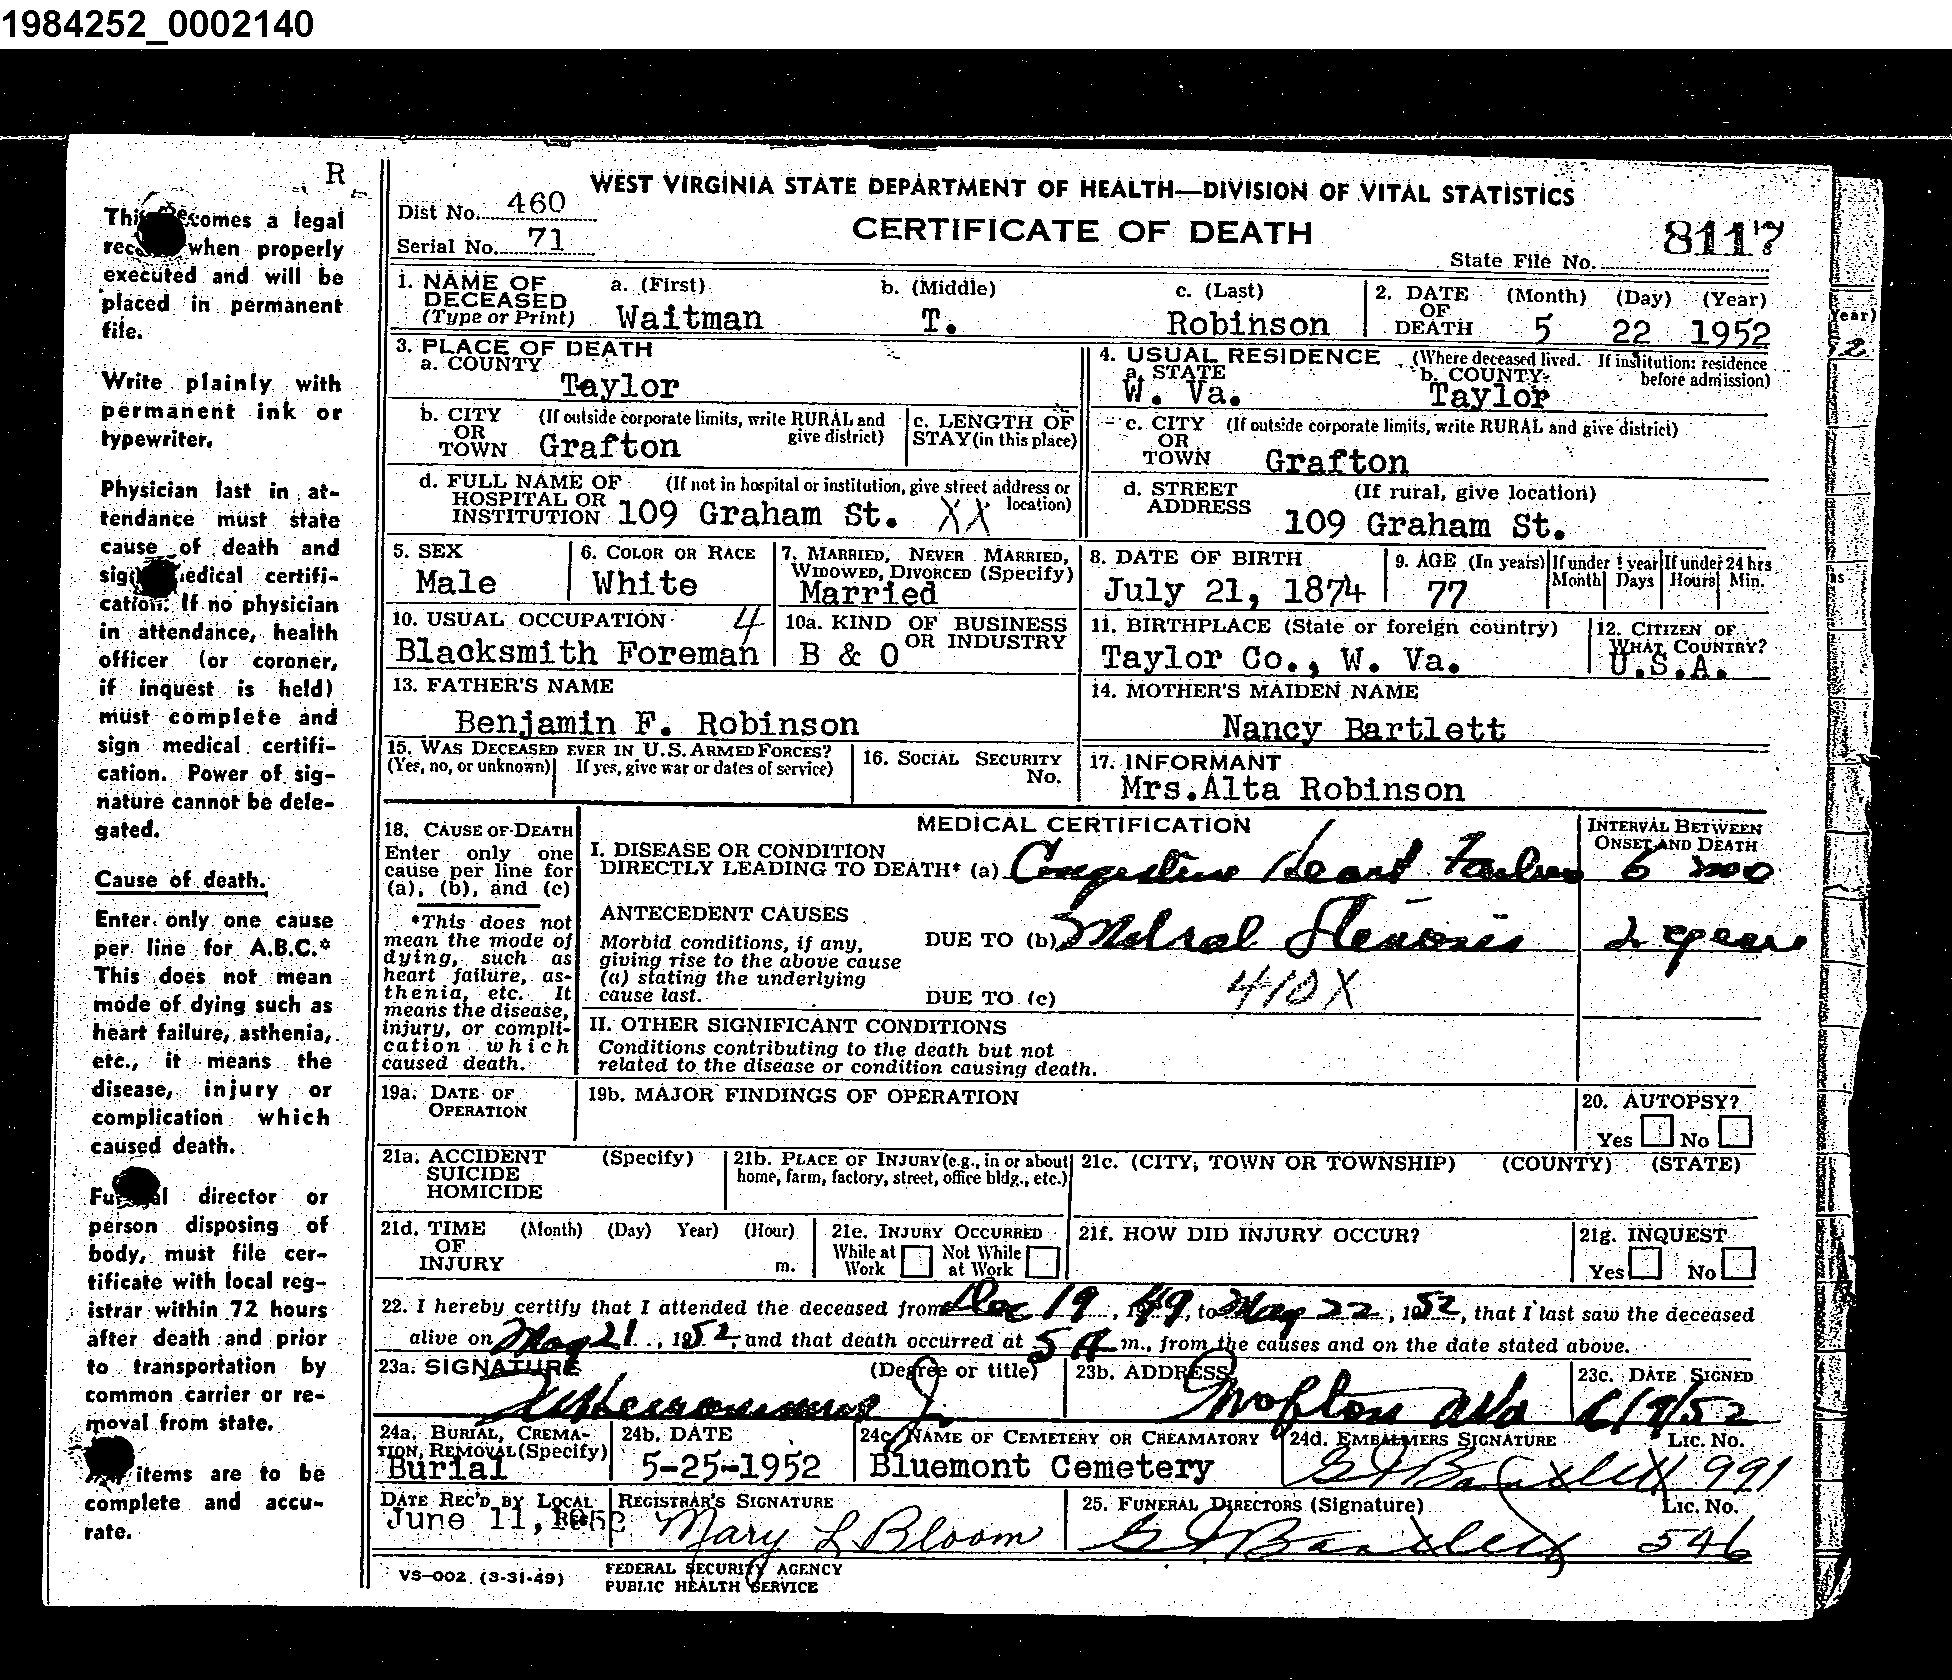 1984252_0002140
R
This becomes a legal
record when properly
executed and will be
placed in permanent
file.
Write plainly with
permanent ink or
typewriter.
Physician last in at-
tendance must state
cause of death and
sign medical certifi-
cation. If no physician
in attendance, health
officer (or coroner,
if inquest is held)
must complete and
sign medical certifi-
cation. Power of sig-
nature cannot be dele-
gated.
Cause of death.
Enter only one cause
per line for A.B.C.*
This does not mean
mode of dying such as
heart failure, asthenia,
etc., it means the
disease, injury or
complication which
caused death.
Funeral director or
person disposing of
body, must file cer-
tificate with local reg-
istrar within 72 hours
after death and prior
to transportation by
common carrier or re-
moval from state.
items are to be
complete and accu-
rate.
WEST VIRGINIA STATE DEPARTMENT OF HEALTH—DIVISION OF VITAL STATISTICS
Dist No. 460
CERTIFICATE OF DEATH
Serial No. 71
State File No. 8117
1. NAME OF DECEASED (Type or Print) a. (First) Waitman b. (Middle) T. c. (Last) Robinson
2. DATE OF DEATH (Month) (Day) (Year) 5 22 1952
3. PLACE OF DEATH
a. COUNTY Taylor
4. USUAL RESIDENCE (Where deceased lived. If institution: residence before admission)
a. STATE W. Va. b. COUNTY Taylor
b. CITY OR TOWN (If outside corporate limits, write RURAL and give district) Grafton
c. LENGTH OF STAY (in this place)
c. CITY OR TOWN (If outside corporate limits, write RURAL and give district) Grafton
d. FULL NAME OF HOSPITAL OR INSTITUTION (If not in hospital or institution, give street address or location) 109 Graham St. XX
d. STREET ADDRESS (If rural, give location) 109 Graham St.
5. SEX Male
6. COLOR OR RACE White
7. MARRIED, NEVER MARRIED, WIDOWED, DIVORCED (Specify) Married
8. DATE OF BIRTH July 21, 1874
9. AGE (In years) 77 If under 1 year Month Days If under 24 hrs Hours Min.
10. USUAL OCCUPATION 4 Blacksmith Foreman
10a. KIND OF BUSINESS OR INDUSTRY B & O
11. BIRTHPLACE (State or foreign country) Taylor Co., W. Va.
12. CITIZEN OF WHAT COUNTRY? U.S.A.
13. FATHER'S NAME Benjamin F. Robinson
14. MOTHER'S MAIDEN NAME Nancy Bartlett
15. WAS DECEASED EVER IN U.S. ARMED FORCES? (Yes, no, or unknown) If yes, give war or dates of service)
16. SOCIAL SECURITY No.
17. INFORMANT Mrs.Alta Robinson
18. CAUSE OF DEATH
Enter only one cause per line for (a), (b), and (c)
*This does not mean the mode of dying, such as heart failure, asthenia, etc. It means the disease, injury, or complication which caused death.
MEDICAL CERTIFICATION
INTERVAL BETWEEN ONSET AND DEATH
I. DISEASE OR CONDITION DIRECTLY LEADING TO DEATH* (a) Congestive Heart Failure 6 mo
ANTECEDENT CAUSES
Morbid conditions, if any, giving rise to the above cause (a) stating the underlying cause last.
DUE TO (b) Mitral Stenosis 2 years
DUE TO (c) 410X
II. OTHER SIGNIFICANT CONDITIONS
Conditions contributing to the death but not related to the disease or condition causing death.
19a. DATE OF OPERATION
19b. MAJOR FINDINGS OF OPERATION
20. AUTOPSY? Yes No
21a. ACCIDENT SUICIDE HOMICIDE (Specify)
21b. PLACE OF INJURY (e.g., in or about home, farm, factory, street, office bldg., etc.)
21c. (CITY, TOWN OR TOWNSHIP) (COUNTY) (STATE)
21d. TIME OF INJURY (Month) (Day) Year) (Hour) m.
21e. INJURY OCCURRED While at Work Not While at Work
21f. HOW DID INJURY OCCUR?
21g. INQUEST Yes No
22. I hereby certify that I attended the deceased from Dec 19, 1949, to May 22, 1952, that I last saw the deceased
alive on May 21, 1952, and that death occurred at 5 A m., from the causes and on the date stated above.
23a. SIGNATURE (Degree or title)
23b. ADDRESS Grafton WVa
23c. DATE SIGNED 6/9/52
24a. BURIAL, CREMATION, REMOVAL (Specify) Burial
24b. DATE 5-25-1952
24c. NAME OF CEMETERY OR CREAMATORY Bluemont Cemetery
24d. EMBALMERS SIGNATURE Lic. No. G F Bartlett 991
DATE REC'D BY LOCAL REG. June 11, 1952
REGISTRAR'S SIGNATURE Mary L Bloom
25. FUNERAL DIRECTORS (Signature) Lic. No. G F Bartlett 546
VS—002 (3-31-49)
FEDERAL SECURITY AGENCY
PUBLIC HEALTH SERVICE